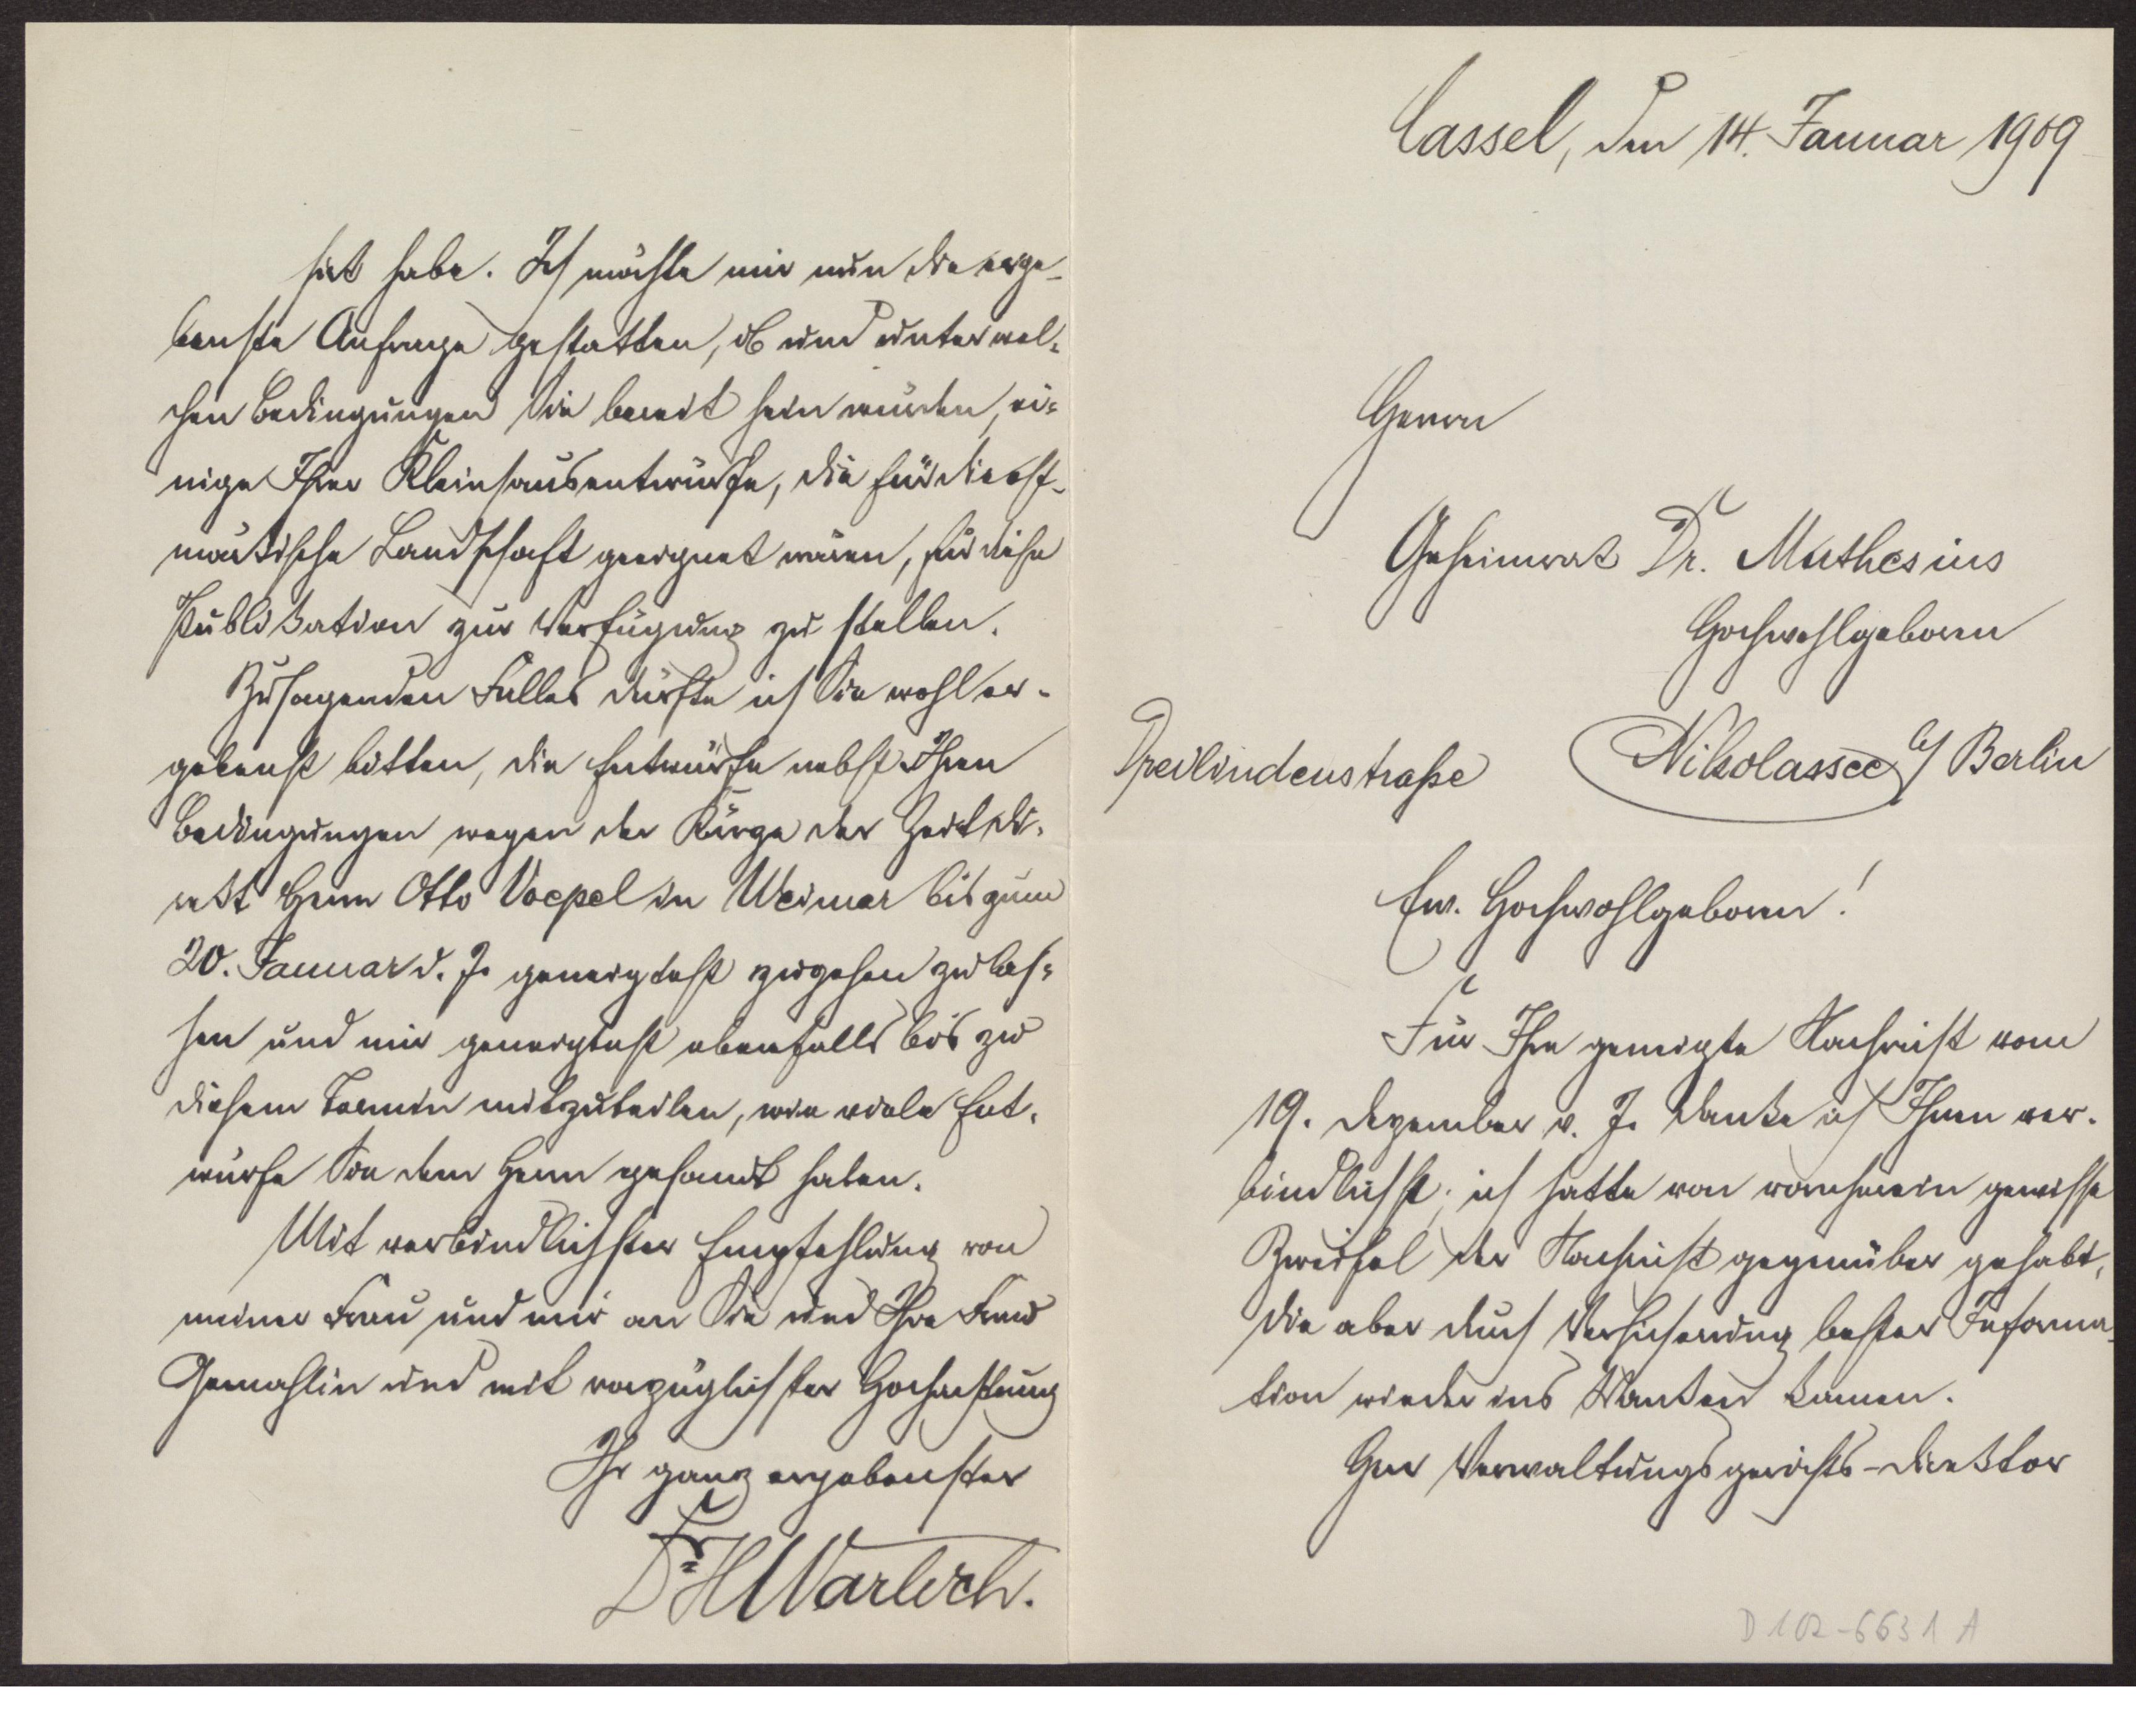 Cassel, den 14. Januar 1909
Herrn
Geheimrat Dr. Muthesius
Hochwohlgeboren
Dreilindenstraße Nikolassee b/ Berlin
Ew. Hochwohlgeboren!
Für Ihre geneigte Nachricht vom
19. Dezember v. J. danke ich Ihnen ver-
bindlichst; ich hatte von vornherein gewisse
Zweifel der Nachricht gegenüber gehabt,
die aber durch Versicherung bester Informa-
tion wieder ins Wanken kamen.
Herr Verwaltungsgerichts-Direktor
D 102-6631 A
hat habe. Ich möchte mir nun die erge-
benste Anfrage gestatten, ob und unter wel-
chen Bedingungen Sie bereit sein würden, ei-
nige Ihrer Kleinhausentwürfe, die für die ost-
märkische Landschaft geeignet wären, für diese
Publikation zur Verfügung zu stellen.
Zusagenden Falles dürfte ich Sie wohl er-
gebenst bitten, die Entwürfe nebst Ihren
Bedingungen wegen der Kürze der Zeit di-
rekt Herrn Otto Voepel in Weimar bis zum
20. Januar d. J. geneigtest zugehen zu las-
sen und mir geneigtest ebenfalls bis zu
diesem Termin mitzuteilen, wie viele Ent-
würfe Sie dem Herrn gesandt haben.
Mit verbindlichster Empfehlung von
meiner Frau und mir an Sie und Ihre Frau
Gemahlin und mit vorzüglichster Hochachtung
Ihr ganz ergebenster
Dr. H Warlich.